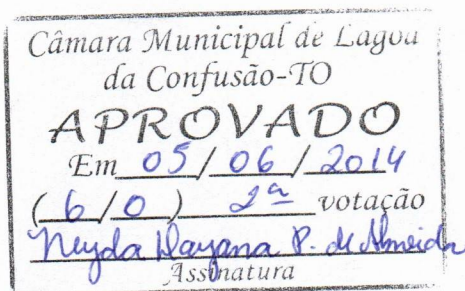 Câmara Municipal de Lagoa
da Confusão-TO
APROVADO
Em 05/06/2014
(6/0) 2ª votação
Neyda Dayana P. de Almeida
Assinatura